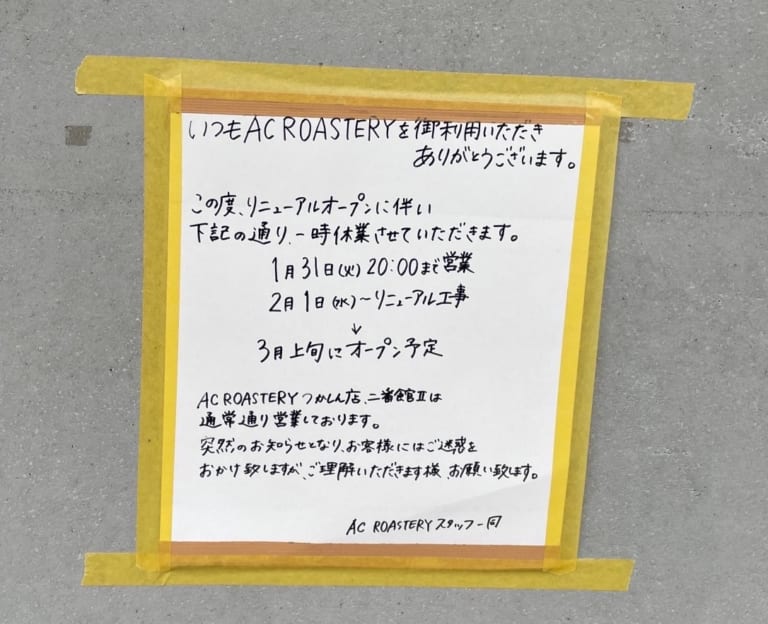 いつもAC ROASTERYを御利用いただき
ありがとうございます。
この度、リニューアルオープンに伴い
下記の通り、一時休業させていただきます。
1月31日(火) 20:00まで営業
2月1日(水)~リニューアル工事
↓
3月上旬にオープン予定
AC ROASTERYつかしん店、二番館Ⅱは
通常通り営業しております。
突然のお知らせとなり、お客様にはご迷惑を
おかけ致しますが、ご理解いただきます様、お願い致します。
AC ROASTERYスタッフ一同